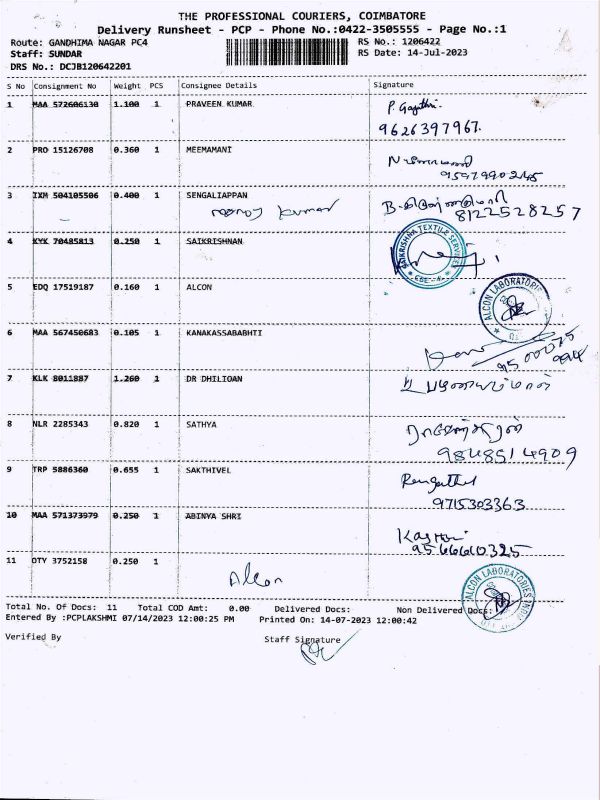 THE PROFESSIONAL COURIERS, COIMBATORE
Delivery Runsheet - PCP - Phone No.:0422-3505555 - Page No.:1
Route: GANDHIMA NAGAR PC4 RS No.: 1206422
Staff: SUNDAR RS Date: 14-Jul-2023
DRS No.: DCJB120642201
S No Consignment No Weight PCS Consignee Details Signature
1 MAA 572606130 1.100 1 PRAVEEN KUMAR
9626397967.
2 PRO 15126708 0.360 1 MEEMAMANI
3 IXM 504105506 0.400 1 SENGALIAPPAN
kumar
8122528257
4 KYK 70485813 0.250 1 SAIKRISHNAN
SAIKRISHNA TEXTILE SERVICES
5 EDQ 17519187 0.160 1 ALCON
ALCON LABORATORIES
6 MAA 567450683 0.105 1 KANAKASSABABHTI
7 KLK 8011887 1.260 1 DR DHILIOAN
8 NLR 2285343 0.820 1 SATHYA
9848514909
9 TRP 5886360 0.655 1 SAKTHIVEL
9715303363
10 MAA 571373979 0.250 1 ABINYA SHRI
11 OTY 3752158 0.250 1
Alcon
ALCON LABORATORIES INDIA
Total No. Of Docs: 11 Total COD Amt: 0.00 Delivered Docs: Non Delivered Docs:
Entered By :PCPLAKSHMI 07/14/2023 12:00:25 PM Printed On: 14-07-2023 12:00:42
Verified By Staff Signature